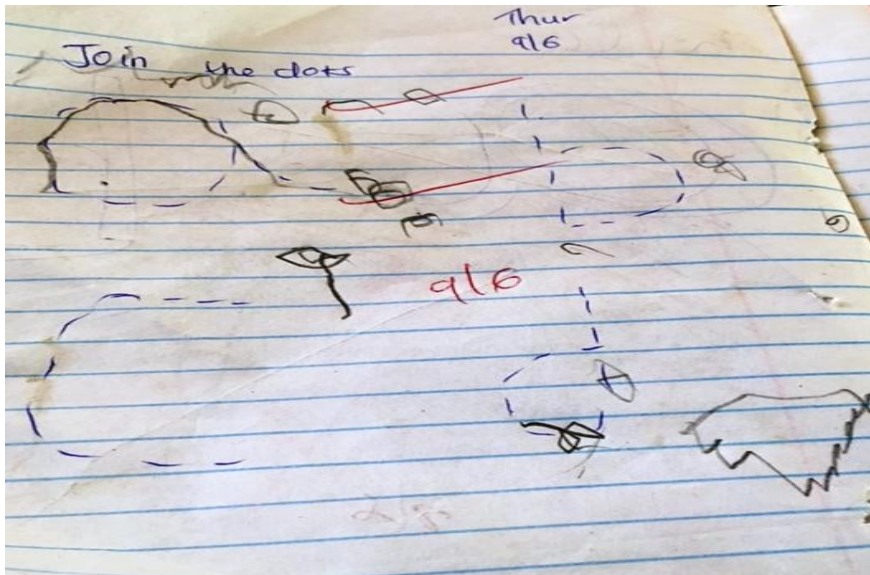 Thur
9/6
Join the dots
9/6